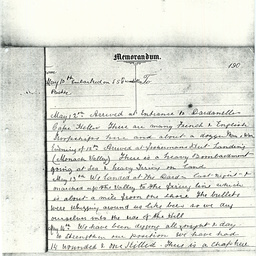 Memorandum.
190
From
May 10th Embarked on S.S. To
May 12th Arrived at Entrance to Dardanelles
Cape Helles There are many French & English
Troopships here and about a dozen Men o War
Evening of 12th Arrived at Landing
(Monash Valley) There is a heavy Bombardment
going at Sea & heavy firing on Land
May 13th We landed at the last night &
marched up the Valley to the firing line which
is about a mile from the shore The bullets
were whizzing around us like bees as we dug
ourselves into the side of the Hill
May 14th We have been digging all night & day
to strengthen our position we have had
14 wounded & one killed There is a chap here